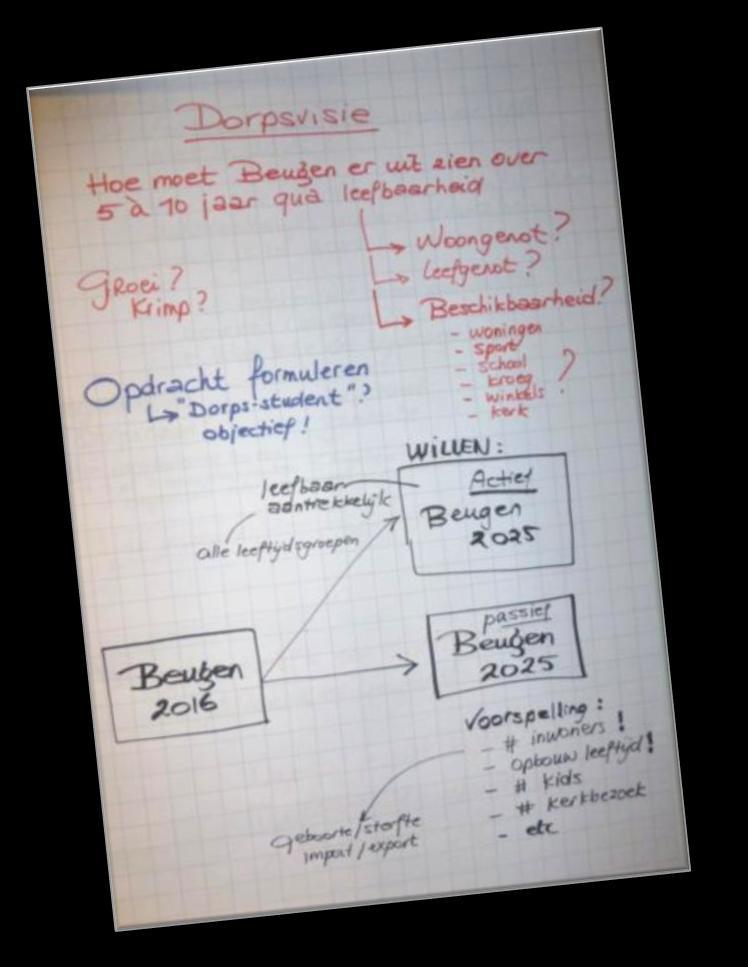 Dorpsvisie
Hoe moet Beugen er uit zien over
5 à 10 jaar qua leefbaarheid
Woongenot?
Leefgenot?
Groei?
Krimp?
Beschikbaarheid?
- woningen
- sport
- school
- kroeg
- winkels
- kerk
?
Opdracht formuleren
"Dorps-student"?
objectief!
WILLEN:
Actief
Beugen
2025
leefbaar
aantrekkelijk
alle leeftijdsgroepen
passief
Beugen
2025
Beugen
2016
Voorspelling:
- # inwoners !
- opbouw leeftijd!
- # kids
- # kerkbezoek
- etc
Geboorte/sterfte
import/export